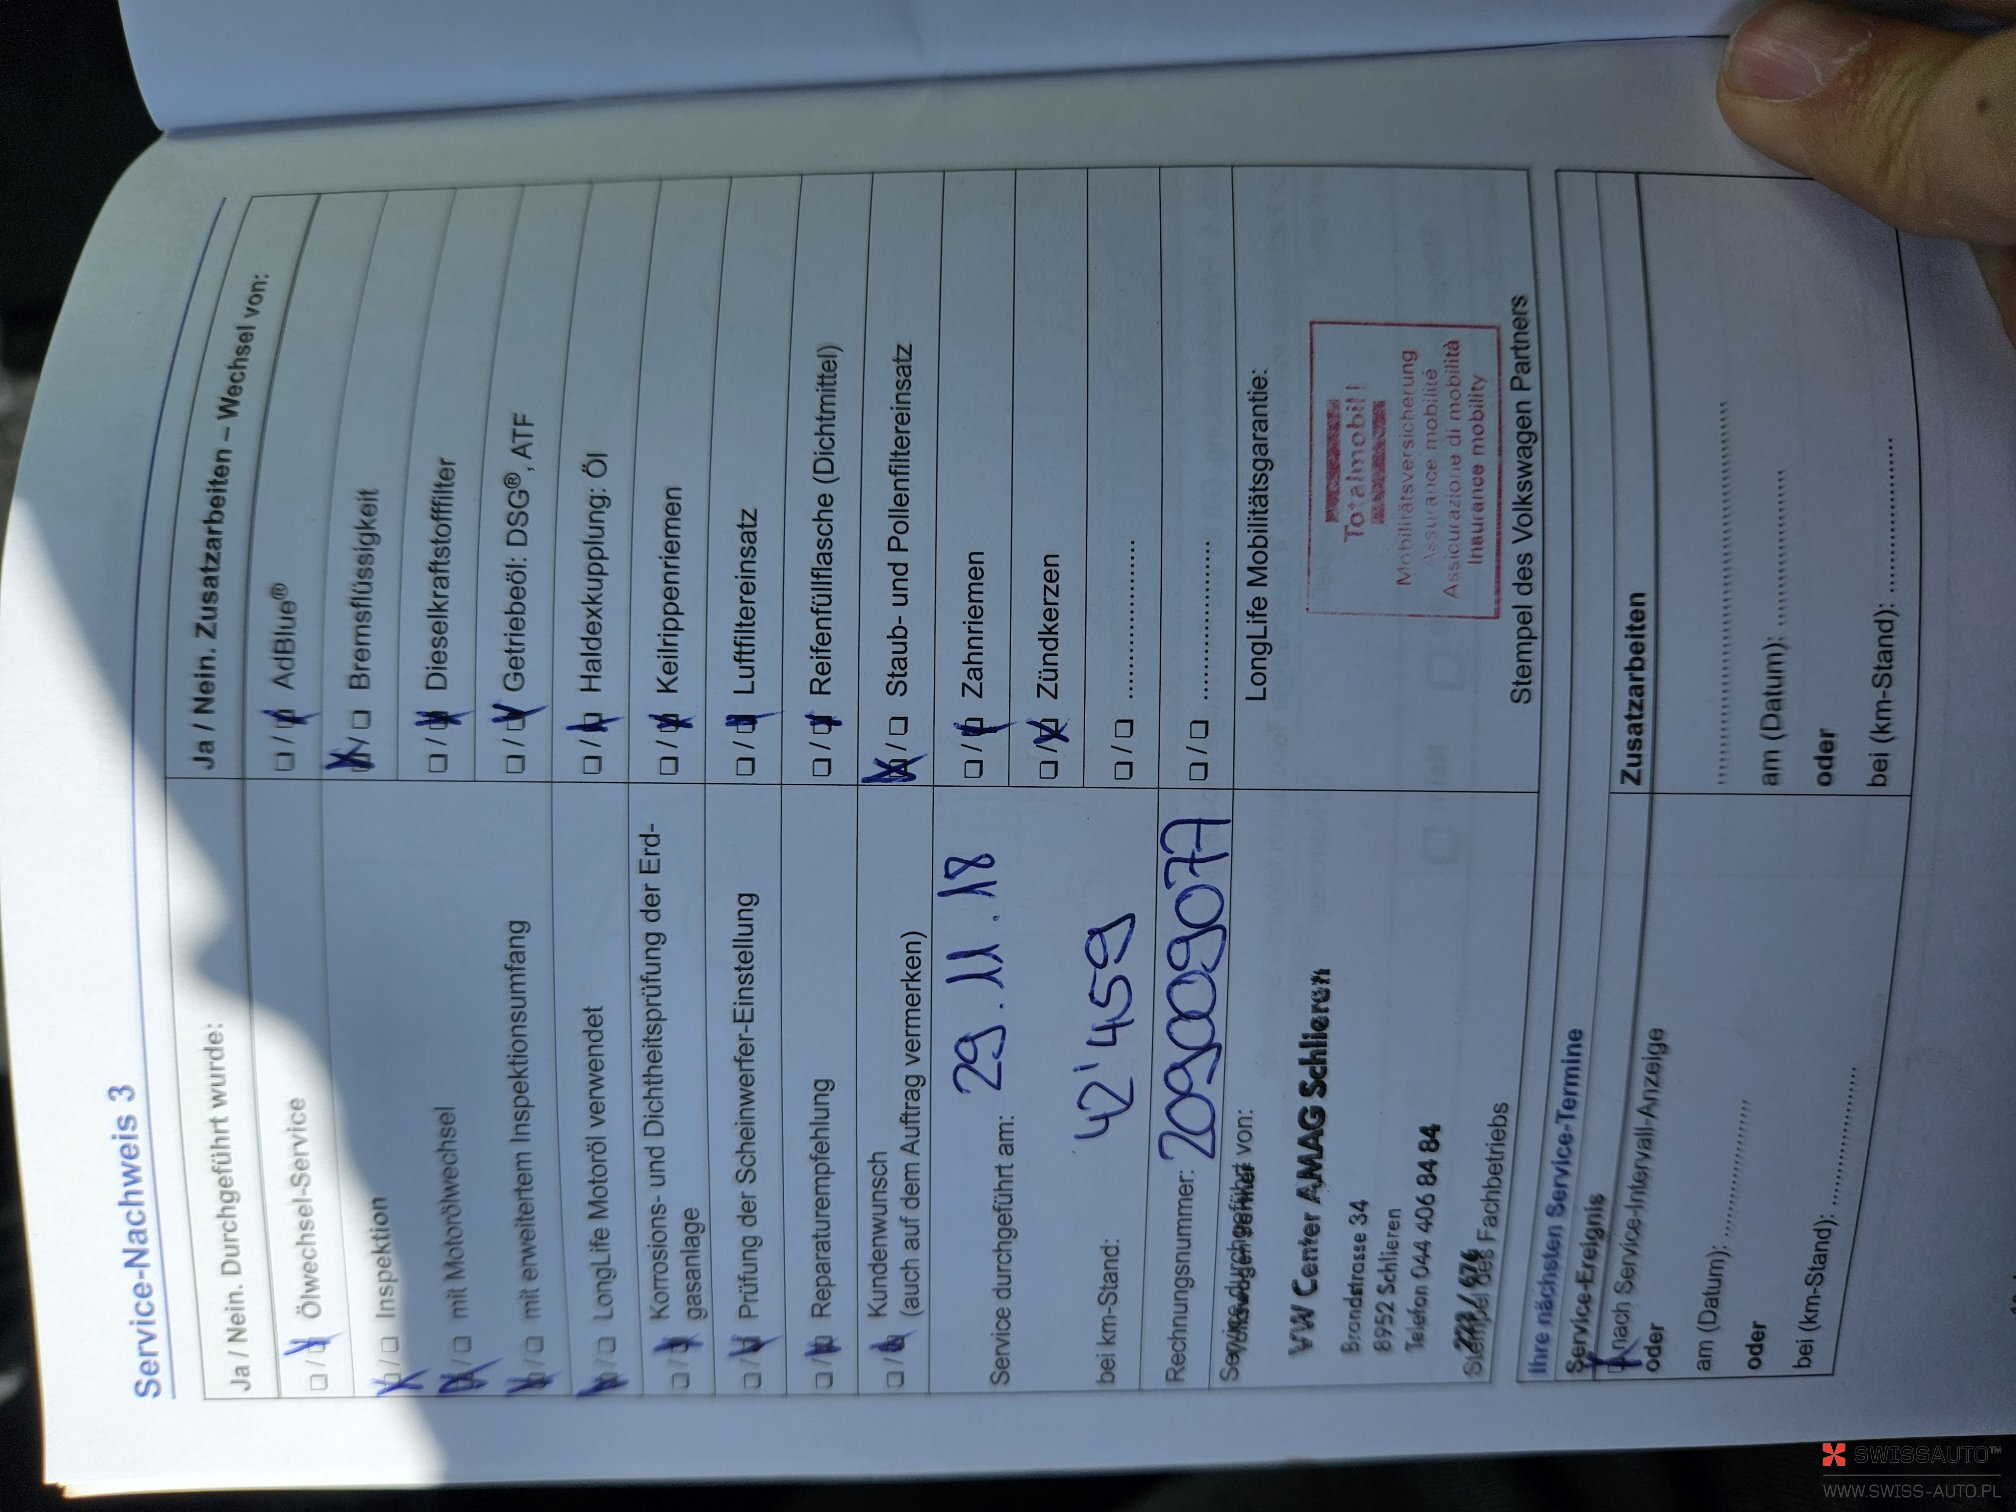 Service-Nachweis 3
Ja / Nein. Durchgeführt wurde:
☐ / ☒ Ölwechsel-Service
☒ / ☐ Inspektion
☒ / ☐ mit Motorölwechsel
☒ / ☐ mit erweitertem Inspektionsumfang
☒ / ☐ LongLife Motoröl verwendet
☐ / ☒ Korrosions- und Dichtheitsprüfung der Erd-
gasanlage
☐ / ☒ Prüfung der Scheinwerfer-Einstellung
☐ / ☒ Reparaturempfehlung
☐ / ☒ Kundenwunsch
(auch auf dem Auftrag vermerken)
Service durchgeführt am: 29.11.18
bei km-Stand: 42'459
Rechnungsnummer: 209009077
Service durchgeführt von:
VW Center AMAG Schlieren
Brandstrasse 34
8952 Schlieren
Telefon 044 406 84 84
Stempel des Fachbetriebs
Ja / Nein. Zusatzarbeiten – Wechsel von:
☐ / ☒ AdBlue®
☒ / ☐ Bremsflüssigkeit
☐ / ☒ Dieselkraftstofffilter
☐ / ☒ Getriebeöl: DSG®, ATF
☐ / ☒ Haldexkupplung: Öl
☐ / ☒ Keilrippenriemen
☐ / ☒ Luftfiltereinsatz
☐ / ☒ Reifenfüllflasche (Dichtmittel)
☒ / ☐ Staub- und Pollenfiltereinsatz
☐ / ☒ Zahnriemen
☐ / ☒ Zündkerzen
☐ / ☐ ....................
☐ / ☐ ....................
LongLife Mobilitätsgarantie:
Totalmobil!
Mobilitätsversicherung
Assurance mobilité
Assicurazione di mobilità
Insurance mobility
Stempel des Volkswagen Partners
Ihre nächsten Service-Termine
Service-Ereignis
☒ nach Service-Intervall-Anzeige
oder
am (Datum): ....................
oder
bei (km-Stand): ....................
Zusatzarbeiten
....................
am (Datum): ....................
oder
bei (km-Stand): ....................
SWISSAUTO™
WWW.SWISS-AUTO.PL